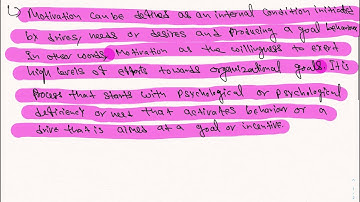 ↳ Motivation can be defined as an internal condition initiated
by drives, needs or desires and producing a goal behaviour
In other words, Motivation as the willingness to exert
high levels of efforts towards organizational goals It is
process that starts with psychological or psychological
deficiency or need that activates behavior or a
drive that is aimed at a goal or incentive.